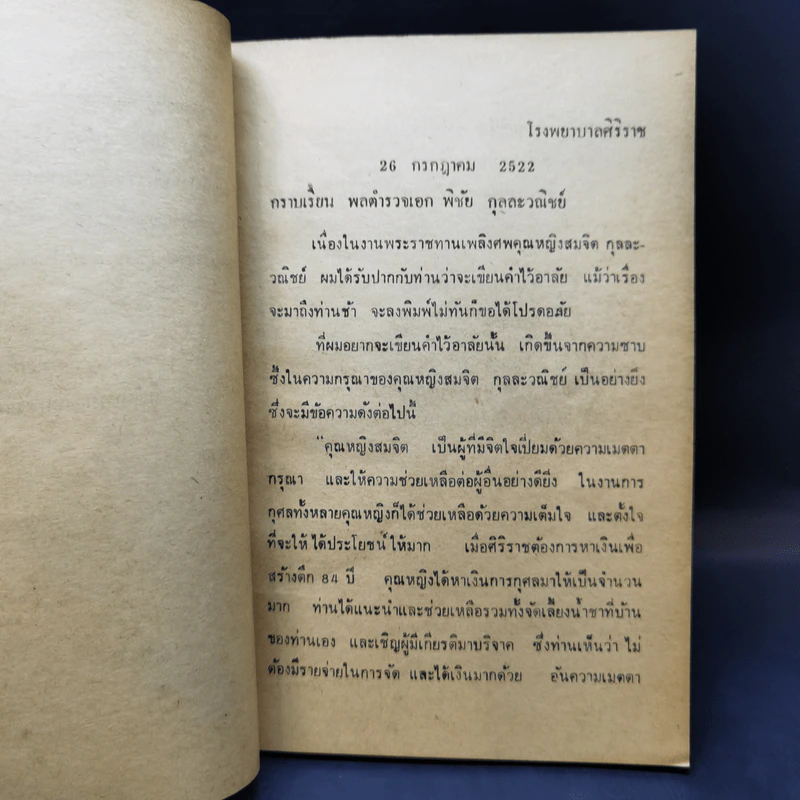 โรงพยาบาลศิริราช
26 กรกฎาคม 2522
กราบเรียน พลตำรวจเอก พิชัย กุลละวณิชย์
เนื่องในงานพระราชทานเพลิงศพคุณหญิงสมจิต กุลละ-
วณิชย์ ผมได้รับปากกับท่านว่าจะเขียนคำไว้อาลัย แม้ว่าเรื่อง
จะมาถึงท่านช้า จะลงพิมพ์ไม่ทันก็ขอได้โปรดอภัย
ที่ผมอยากจะเขียนคำไว้อาลัยนั้น เกิดขึ้นจากความซาบ
ซึ้งในความกรุณาของคุณหญิงสมจิต กุลละวณิชย์ เป็นอย่างยิ่ง
ซึ่งจะมีข้อความดังต่อไปนี้
"คุณหญิงสมจิต เป็นผู้ที่มีจิตใจเปี่ยมด้วยความเมตตา
กรุณา และให้ความช่วยเหลือต่อผู้อื่นอย่างดียิ่ง ในงานการ
กุศลทั้งหลายคุณหญิงก็ได้ช่วยเหลือด้วยความเต็มใจ และตั้งใจ
ที่จะให้ได้ประโยชน์ให้มาก เมื่อศิริราชต้องการหาเงินเพื่อ
สร้างตึก 84 ปี คุณหญิงได้หาเงินการกุศลมาให้เป็นจำนวน
มาก ท่านได้แนะนำและช่วยเหลือรวมทั้งจัดเลี้ยงน้ำชาที่บ้าน
ของท่านเอง และเชิญผู้มีเกียรติมาบริจาค ซึ่งท่านเห็นว่า ไม่
ต้องมีรายจ่ายในการจัด และได้เงินมากด้วย อันความเมตตา